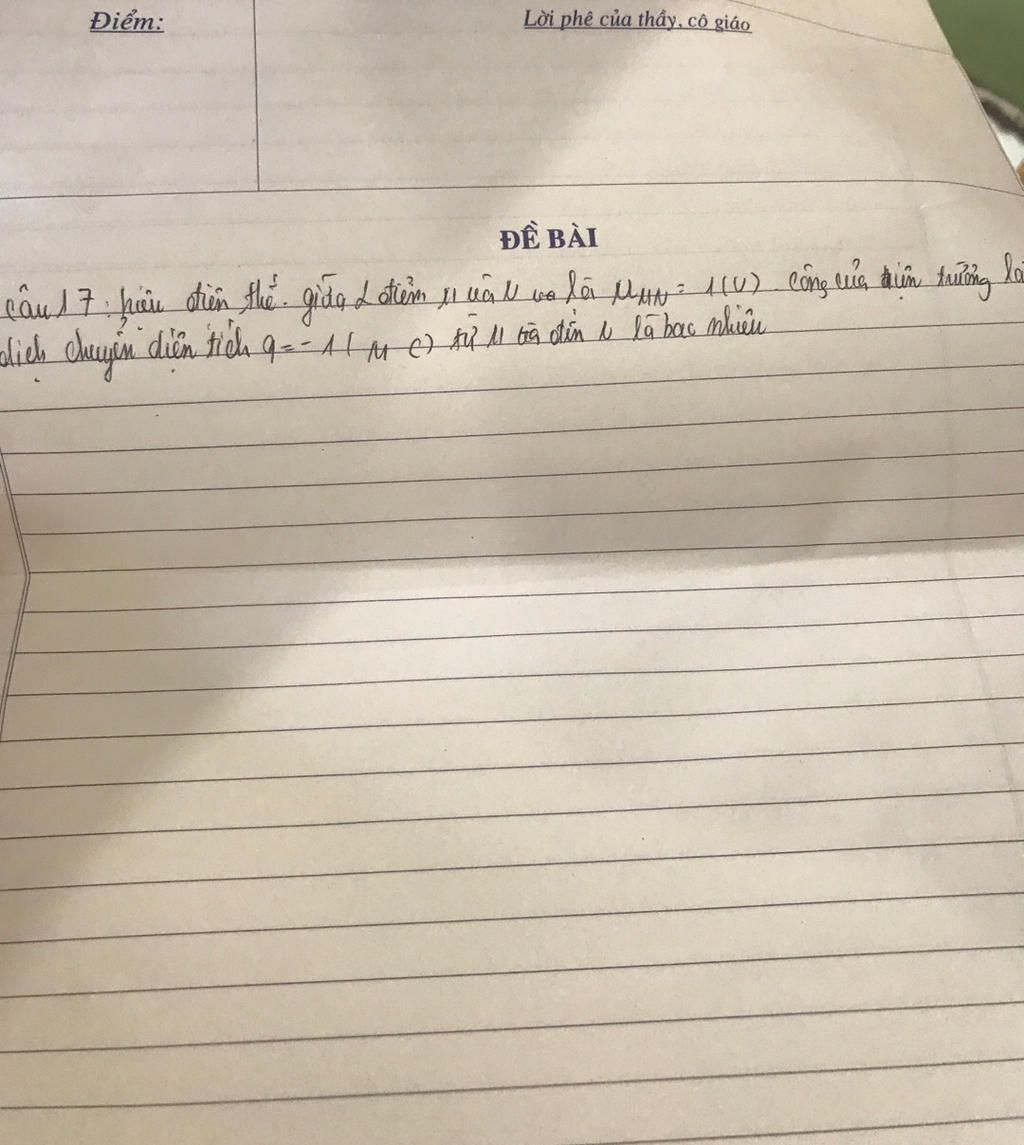 Điểm:
Lời phê của thầy, cô giáo
ĐỀ BÀI
câu 17: hiệu điện thế giữa 2 điểm M và N là UMN = 1(V). Công của điện trường là
dịch chuyển điện tích q = - 1 ( μ C) từ M đến N là bao nhiêu